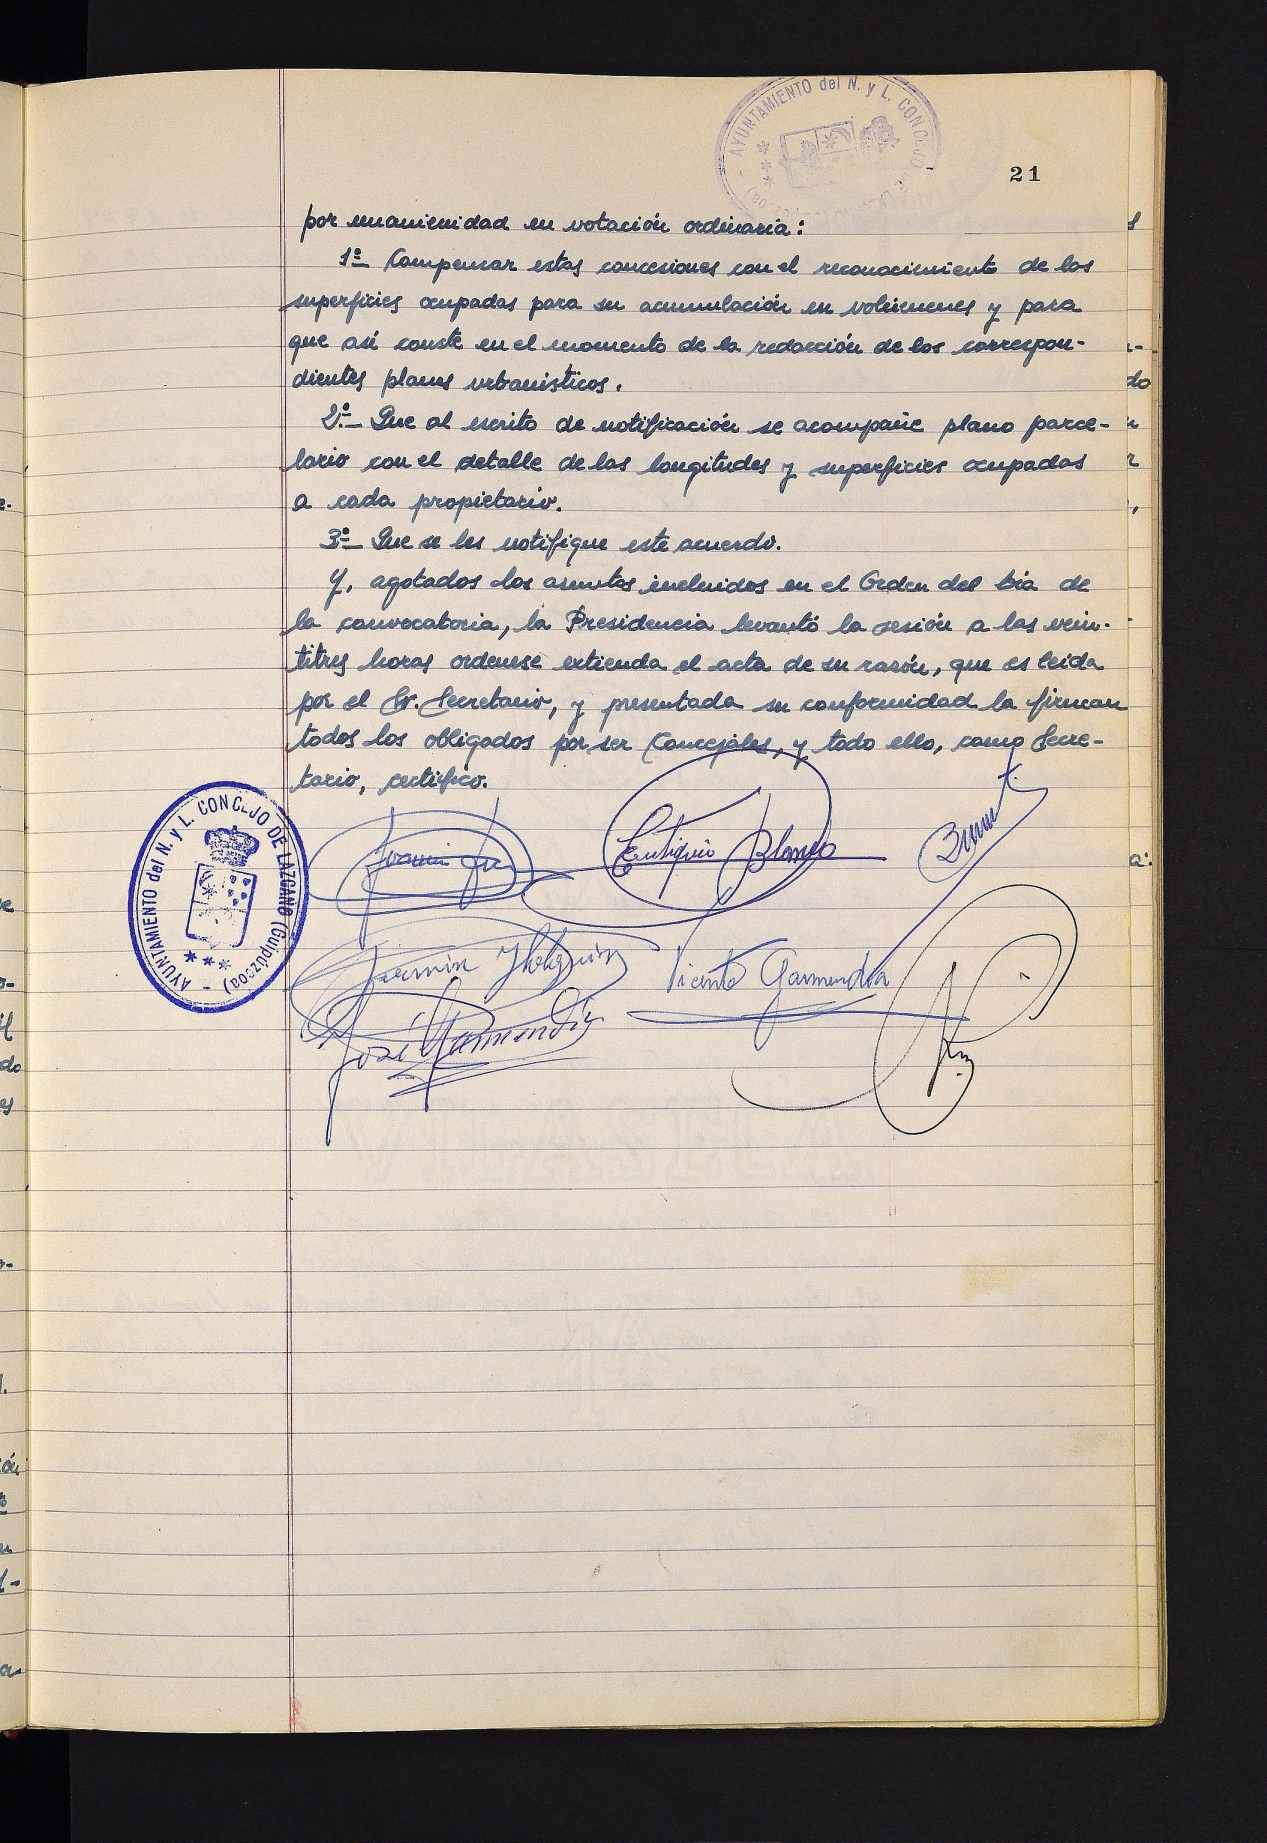 AYUNTAMIENTO del N. y L. CONCEJO DE
21
por unanimidad en votación ordinaria:
1º- Compensar estas concesiones con el reconocimiento de las
superficies ocupadas para su acumulación en volúmenes y para
que así conste en el momento de la redacción de los correspon-
dientes planes urbanísticos.
2º.- Que al escrito de notificación se acompañe plano parce-
lario con el detalle de las longitudes y superficies ocupadas
a cada propietario.
3º- Que se les notifique este acuerdo.
Y, agotados los asuntos incluidos en el Orden del Día de
la convocatoria, la Presidencia levantó la sesión a las vein-
titres horas ordenese extienda el acta de su razón, que es leida
por el Sr. Secretario, y presentada su conformidad la firman
todos los obligados por ser Concejales, y todo ello, como Secre-
tario, certifico.
AYUNTAMIENTO del N. y L. CONCEJO DE LAZCANO (Guipúzcoa)
Eutiquio Blanco
Fermin
Vicente Garmendia
José Garmendia